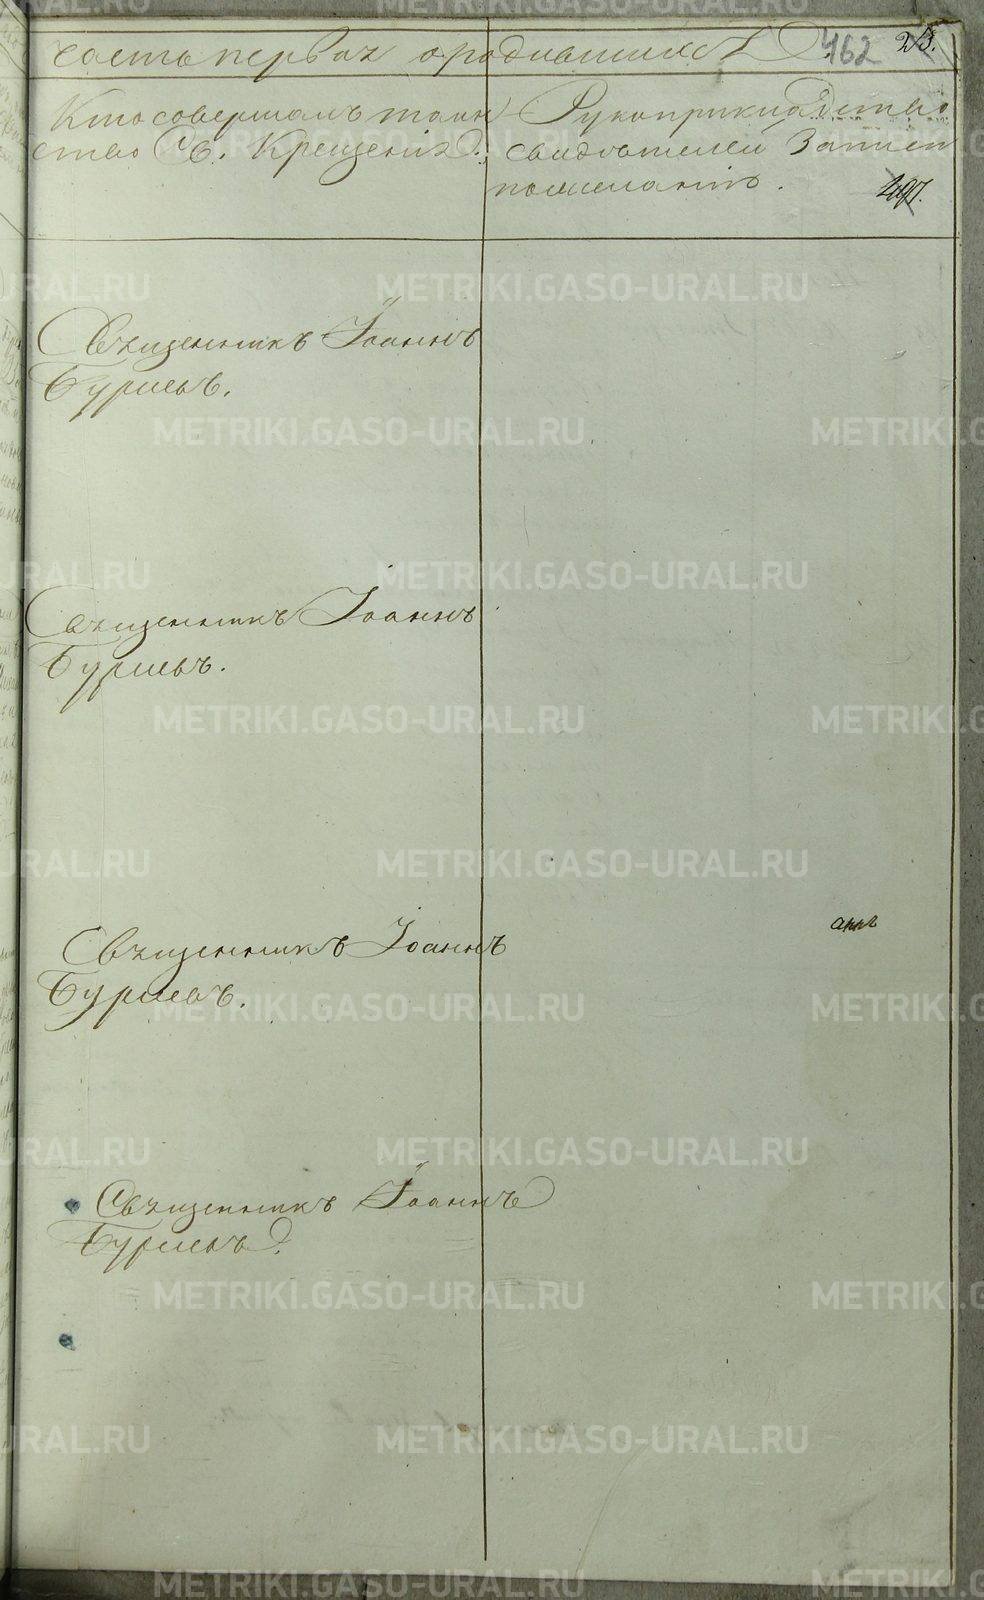 часть первая о родившихся. 462 28.
Кто совершалъ таин-
ство Св. Крещенія.
Рукоприкладство
свидѣтелей записи
по желанію.
497.
Священникъ Іоаннъ
Бурцевъ.
Священникъ Іоаннъ
Бурцевъ.
Священникъ Іоаннъ
Бурцевъ.
Священникъ Іоаннъ
Бурцевъ.
METRIKI.GASO-URAL.RU